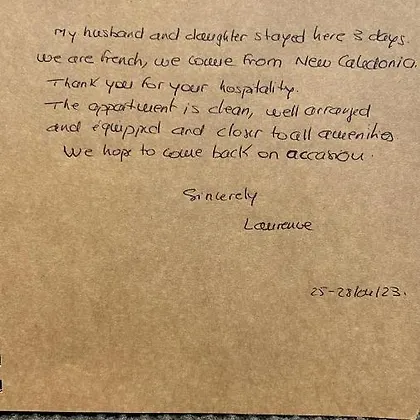 My husband and daughter stayed here 3 days.
We are french, we come from New Caledonia.
Thank you for your hospitality.
The appartment is clean, well arranged
and équipped and closer to all amenities
We hope to come back on accasion.
Sincerely
Laurence
25-28/04/23.